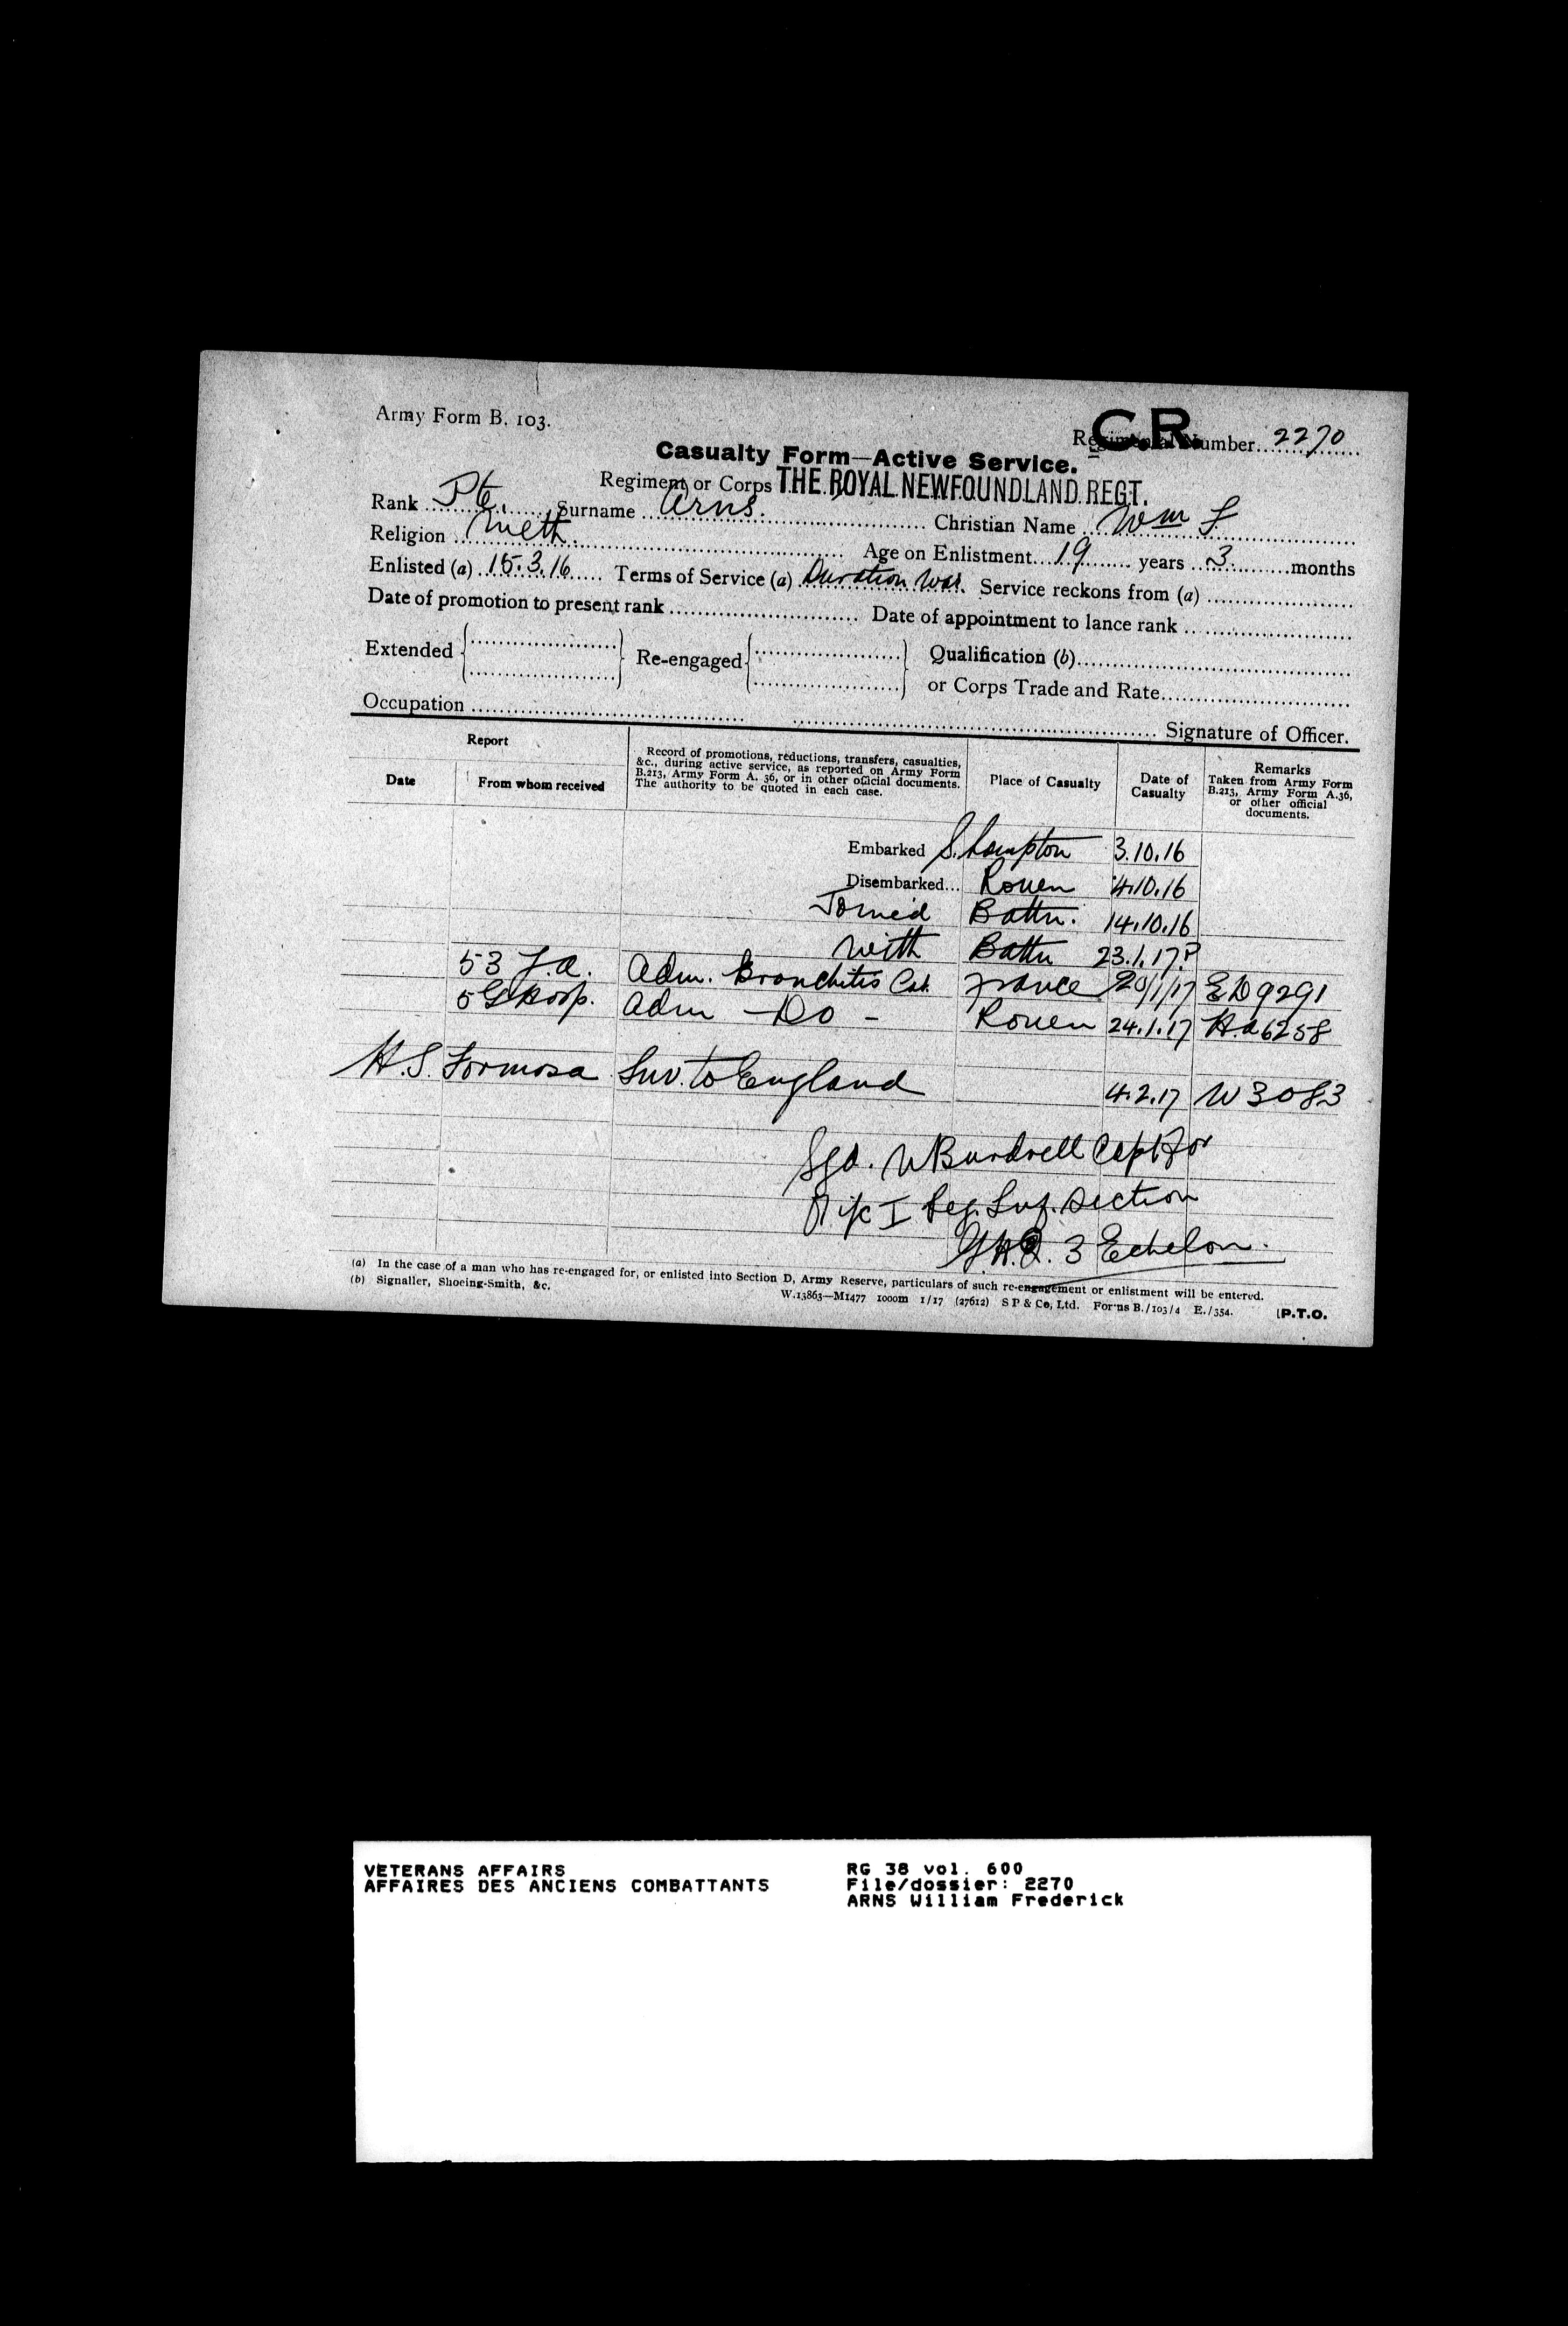 Army Form B. 103.
CR
Regimental Number 2270
Casualty Form—Active Service.
Regiment or Corps THE ROYAL NEWFOUNDLAND REGT.
Rank Pte. Surname Arns. Christian Name Wm F
Religion Meth. Age on Enlistment 19 years 3 months
Enlisted (a) 15.3.16 Terms of Service (a) Duration War. Service reckons from (a)
Date of promotion to present rank Date of appointment to lance rank
Extended Re-engaged Qualification (b)
or Corps Trade and Rate
Occupation Signature of Officer.
Report
Date From whom received
Record of promotions, reductions, transfers, casualties,
&c., during active service, as reported on Army Form
B.213, Army Form A. 36, or in other official documents.
The authority to be quoted in each case.
Place of Casualty
Date of
Casualty
Remarks
Taken from Army Form
B.213, Army Form A.36,
or other official
documents.
Embarked S.hampton 3.10.16
Disembarked... Rouen 4.10.16
Joined Battn. 14.10.16
with Battn 23.1.17.
53 F.A. Adm. Bronchitis France 20/1/17 ED9291
5 G Hosp. Adm —Do— Rouen 24.1.17 H.a6258
H.S. Formosa Inv. to England 4.2.17 W3083
Sgd. W Burdrell Capt for
O i/c I Reg. Inf. Section
G.H.Q. 3 Echelon.
(a) In the case of a man who has re-engaged for, or enlisted into Section D, Army Reserve, particulars of such re-engagement or enlistment will be entered.
(b) Signaller, Shoeing-Smith, &c.
W.13863—M1477 1000m 1/17 (27612) S P & Co, Ltd. Forms B./103/4 E./354. [P.T.O.
VETERANS AFFAIRS RG 38 vol. 600
AFFAIRES DES ANCIENS COMBATTANTS File/dossier: 2270
ARNS William Frederick